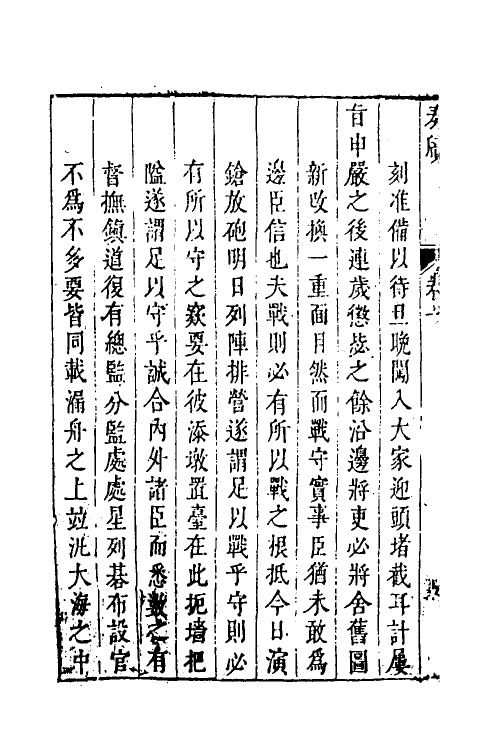 奏
卷
刻准備以待旦晚闖入大家迎頭堵截耳計屢
旨申嚴之後連歲懲毖之餘沿邊將吏必將舍舊圖
新改換一重面目然而戰守實事臣猶未敢爲
邊臣信也夫戰則必有所以戰之根抵今日演
鎗放砲明日列陣排營遂謂足以戰乎守則必
有所以守之欵要在彼添墩置臺在此扼墻把
隘遂謂足以守乎誠合內外諸臣而悉數之有
督撫鎭道復有總監分監處處星列碁布設官
不爲不多要皆同載漏舟之上竝泛大海之中